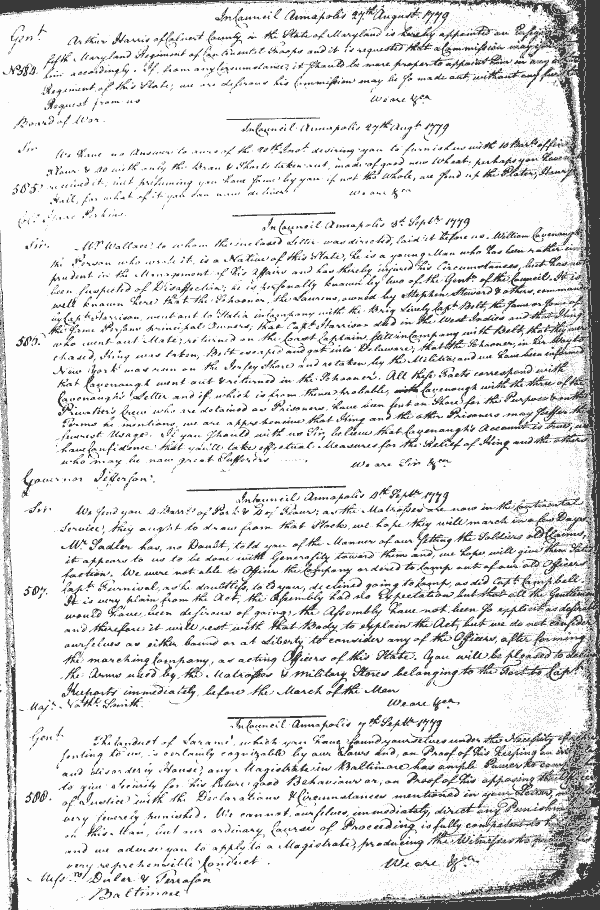 In Council Annapolis 27th August 1779
Gent.
Arthur Harris of Calvert County in the State of Maryland is hereby appointed an Ensign
fifth Maryland Regiment of Continental Troops and it is requested that a Commission may
No. 584. him accordingly. If, from any Circumstances, it should be more proper to appoint him in any
Regiment of this State, we are desirous his Commission may be so made out, without any
Request from us We are &ca
Board of War.
In Council Annapolis 27th Augt 1779
Sir
We have no Answer to ours of the 20th Inst. desiring you to furnish us with 10 Barls of
Flour & 20 with only the Bran & Shorts taken out, made of good new Wheat. perhaps you have
585. received it, but presuming you have some by you if not the Whole, we send up the Plater,
Hall, for what of it you can now deliver We are &ca
Perkins.
In Council Annapolis 3d Septr 1779
Sir.
Mr Wallace to whom the inclosed Letter was directed, laid it before us. William Cavenough
the Person who wrote it, is a Native of this State, he is a young Man who has been rather
prudent in the Management of his Affairs and has thereby injured his Circumstances, but has
been suspected of Disaffection; he is personally known by two of the Gent. of the Council. It is
well known here that the Schooner, the Laurens, owned by Stephen Steward & others,
by Capt Harrison, went out to Statia in Company with the Brig Lively Capt Belt, the same or some of
the same Persons principal Owners, that Capt Harrison died in the West Indies and that King
586. who went out Mate, returned on the Coast Captain still in Company with Belt, that they were
chased, King was taken, Belt escaped and got into Delaware; that the Schooner, in her Way to
New York was run on the Jersey Shore and retaken by the Militia; and we have been informed
that Cavenough went out & returned in the Schooner. All these Facts correspond with
Cavenough's Letter and if which is from them probable, Cavenough with the three of the
Privateer's Crew who are detained as Prisoners, have been put on Shore for the Purpose & on the
Terms he mentions, we are apprehensive that King and the other Prisoners may suffer the
severest Usage. If you should with us Sir, believe that Cavenough's Account is true, we
have Confidence that you'll take effectual Measures for the Relief of King and the others
who may be now great Sufferers We are Sir &ca
Governor Jefferson.
In Council Annapolis 4th Septr 1779
Sir.
We send you 4 Barrls of Pork & 2 of Flour; as the Matrosses are now in the Continental
Service, they ought to draw from that Stock, we hope they will march in a few Days
Mr Sadler has, no Doubt, told you of the Manner of our setting the Soldiers old Claims,
it appears to us to be done with Generosity toward them and, we hope will give them
faction. We were not able to Officer the Company ordered to Camp out of our old Officers
587. Capt Furnival, as he doubtless, told you, declined going to Camp, as did Capt Campbell.
It is very plain from the Act, the Assembly had no Expectation but that all the Gentlemen
would have been desirous of going; the Assembly have not been so explicit as
and therefore it will rest with that Body to explain the Act, but we do not consider
ourselves as either bound or at Liberty to consider any of the Officers, after forming
the marching Company, as acting Officers of this State. You will be pleased to
the Arms used by the Matrosses & military Stores belonging to the Fort to Capt
Keeports immediately, before the March of the Men
Majr Nathl Smith. We are &ca.
In Council Annapolis 7th Septr 1779
Gent.
The Conduct of which you have found yourselves under the Necessity of
senting to us, is certainly cognizable by our Laws and, on Proof of his keeping an
and disorderly House, any Magistrate in Baltimore has ample Power to
to give Security for his future good Behaviour or, on Proof of his opposing the Officers
588. of Justice with the Declarations & Circumstances mentioned in your Letter,
very severely punished. We cannot, ourselves, immediately, direct any Punishment
on this Man, but our ordinary Course of Proceeding is fully competent to
and we advise you to apply to a Magistrate, producing the Witnesses to
very reprehensible Conduct. We are &ca
Messrs Duler & Terrason
Baltimore